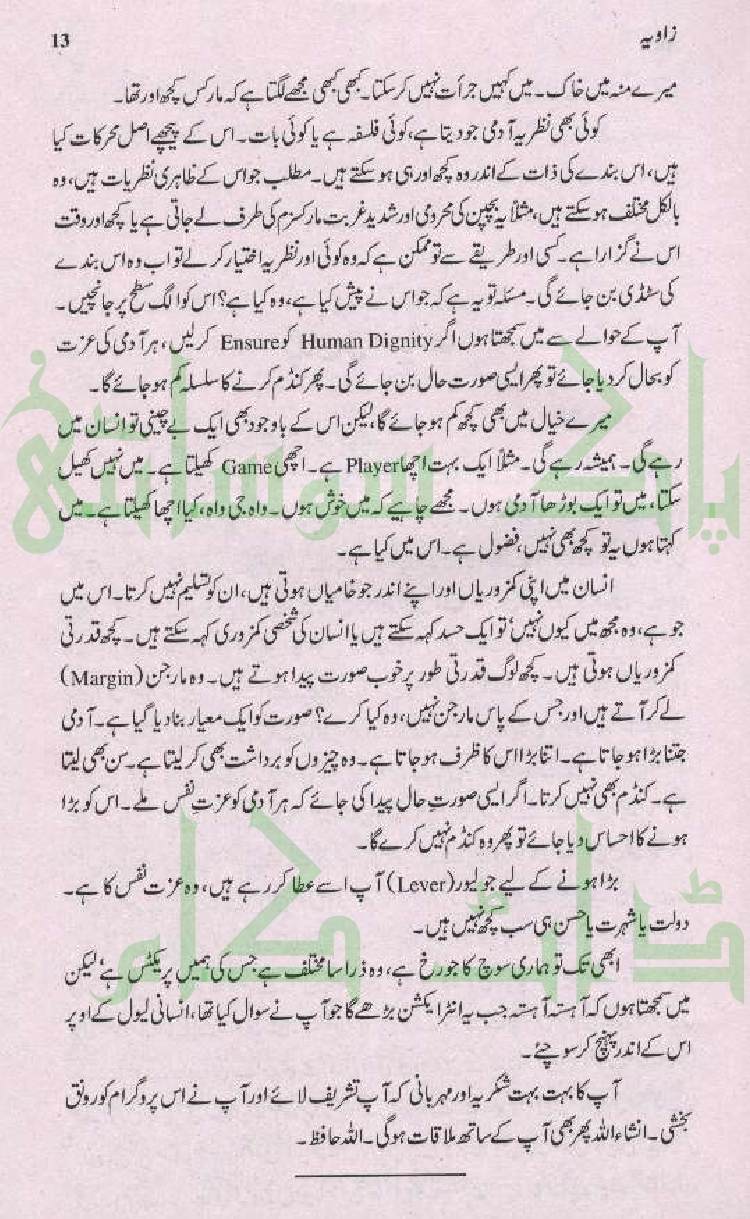 زاویہ
13
میرے منہ میں خاک۔ میں کہیں جرأت نہیں کرسکتا۔ کبھی کبھی مجھے لگتا ہے کہ مارکس کچھ اور تھا۔
کوئی بھی نظریہ آدمی جو دیتا ہے، کوئی فلسفہ ہے یا کوئی بات۔ اس کے پیچھے اصل محرکات کیا
ہیں، اس بندے کی ذات کے اندر وہ کچھ اور ہی ہو سکتے ہیں۔ مطلب جو اس کے ظاہری نظریات ہیں، وہ
بالکل مختلف ہو سکتے ہیں، مثلاً یہ بچپن کی محرومی اور شدید غربت مارکسزم کی طرف لے جاتی ہے یا کچھ اور وقت
اس نے گزارا ہے۔ کسی اور طریقے سے تو ممکن ہے کہ وہ کوئی اور نظریہ اختیار کرلے تو اب وہ اس بندے
کی سٹڈی بن جائے گی۔ مسئلہ تو یہ ہے کہ جو اس نے پیش کیا ہے، وہ کیا ہے؟ اس کو الگ سطح پر جانچیں۔
آپ کے حوالے سے میں سمجھتا ہوں اگر Human Dignity کو Ensure کرلیں، ہر آدمی کی عزت
کو بحال کردیا جائے تو پھر ایسی صورت حال بن جائے گی۔ پھر کنڈم کرنے کا سلسلہ کم ہو جائے گا۔
میرے خیال میں بھی کچھ کم ہو جائے گا، لیکن اس کے باوجود بھی ایک بے چینی تو انسان میں
رہے گی۔ ہمیشہ رہے گی۔ مثلاً ایک بہت اچھا Player ہے۔ اچھی Game کھیلتا ہے۔ میں نہیں کھیل
سکتا، میں تو ایک بوڑھا آدمی ہوں۔ مجھے چاہیے کہ میں خوش ہوں۔ واہ جی واہ، کیا اچھا کھیلتا ہے۔ میں
کہتا ہوں یہ تو کچھ بھی نہیں، فضول ہے۔ اس میں کیا ہے۔
انسان میں اپنی کمزوریاں اور اپنے اندر جو خامیاں ہوتی ہیں، ان کو تسلیم نہیں کرتا۔ اس میں
جو ہے، وہ مجھ میں کیوں نہیں' تو ایک حسد کہہ سکتے ہیں یا انسان کی شخصی کمزوری کہہ سکتے ہیں۔ کچھ قدرتی
کمزوریاں ہوتی ہیں۔ کچھ لوگ قدرتی طور پر خوب صورت پیدا ہوتے ہیں۔ وہ مارجن (Margin)
لے کر آتے ہیں اور جس کے پاس مارجن نہیں، وہ کیا کرے؟ صورت کو ایک معیار بنا دیا گیا ہے۔ آدمی
جتنا بڑا ہو جاتا ہے۔ اتنا بڑا اس کا ظرف ہو جاتا ہے۔ وہ چیزوں کو برداشت بھی کرلیتا ہے۔ سن بھی لیتا
ہے۔ کنڈم بھی نہیں کرتا۔ اگر ایسی صورتِ حال پیدا کی جائے کہ ہر آدمی کو عزتِ نفس ملے۔ اس کو بڑا
ہونے کا احساس دیا جائے تو پھر وہ کنڈم نہیں کرے گا۔
بڑا ہونے کے لیے جو لیور (Lever) آپ اسے عطا کررہے ہیں، وہ عزت نفس کا ہے۔
دولت یا شہرت یا حسن ہی سب کچھ نہیں ہیں۔
ابھی تک تو ہماری سوچ کا جو رخ ہے، وہ ذرا سا مختلف ہے جس کی ہمیں پریکٹس ہے' لیکن
میں سمجھتا ہوں کہ آہستہ آہستہ جب یہ انٹرایکشن بڑھے گا جو آپ نے سوال کیا تھا، انسانی لیول کے اوپر
اس کے اندر پہنچ کر سوچئے۔
آپ کا بہت بہت شکریہ اور مہربانی کہ آپ تشریف لائے اور آپ نے اس پروگرام کو رونق
بخشی۔ انشاء اللہ پھر بھی آپ کے ساتھ ملاقات ہوگی۔ اللہ حافظ۔
پاک سوسائٹی
ڈاٹ کام